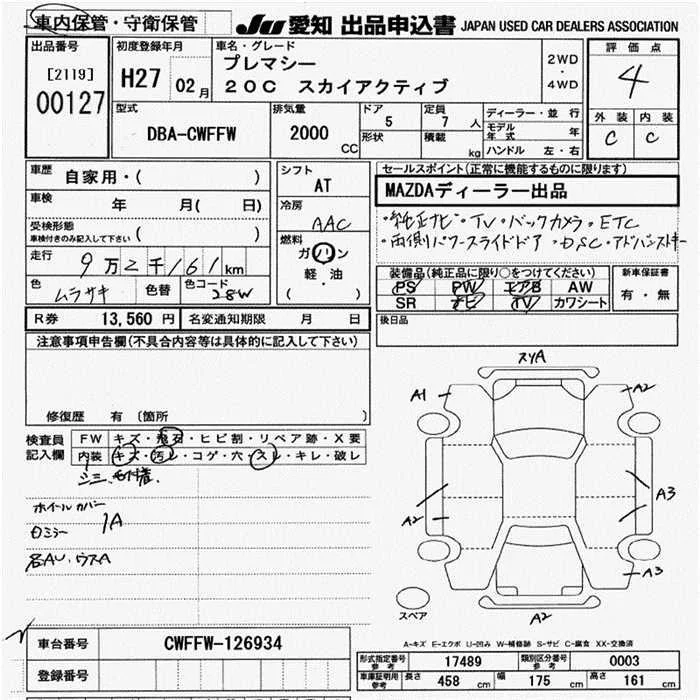 車内保管・守衛保管
JU 愛知 出品申込書 JAPAN USED CAR DEALERS ASSOCIATION
出品番号
[2119]
00127
初度登録年月
H27 02月
車名・グレード
プレマシー
20C スカイアクティブ
2WD
・
4WD
評価点
4
外装 内装
C C
型式
DBA-CWFFW
排気量
2000
CC
ドア
5
形状
定員
7 人
積載
kg
ディーラー・並行
モデル年式 年
ハンドル 左・右
車歴 自家用・( )
車検 年 月( 日)
受検形態
車検付きのみ記入して下さい ( )
走行 9万2千161km
色 ムラサキ
色替
色コード 28W
シフト
AT
冷房
AAC
燃料
ガソリン
軽・油
( )
セールスポイント(正常に機能するものに限ります)
MAZDAディーラー出品
・純正ナビ・TV・バックカメラ・ETC
・両側パワースライドドア・DSC・アドバンストキー
装備品(純正品に限り○をつけてください)
PS PW エアB AW
SR ナビ TV カワシート
新車保証書
有・無
R券 13,560円 名変通知期限 月 日
後日品
注意事項申告欄(不具合内容等は具体的に記入して下さい)
修復歴 有 [箇所 ]
検査員
記入欄
FW キズ・飛石・ヒビ割・リペア跡・X要
内装 キズ・汚レ・コゲ・穴・スレ・キレ・破レ
シミ
ホイールカバー
ミラー
1A
スリA
A1
A2
A2
A3
A3
A2
スペア
A-キズ E-エクボ U-凹み W-補修跡 S-サビ C-腐食 XX-交換済
車台番号 CWFFW-126934
登録番号
形式指定番号 参考 17489 類別区分番号 参考 0003
車庫証明用 参考 長さ 458 cm 幅 175 cm 高さ 161 cm